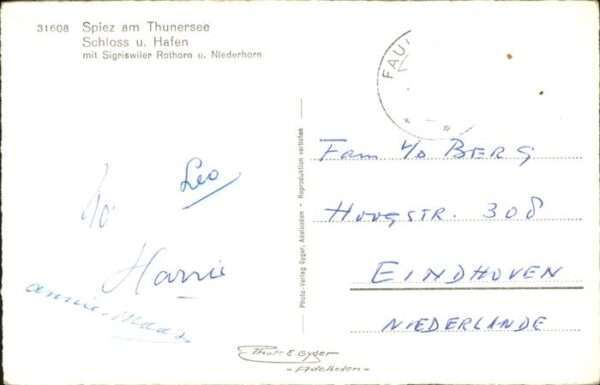 31608 Spiez am Thunersee
Schloss u. Hafen
mit Sigriswiler Rothorn u. Niederhorn
FAU
Leo
Jo
Harrie
annie-
Photo-Verlag Gyger, Adelboden - Reproduktion verboten
Fam v/d BERG
HOOGSTR. 308
EINDHOVEN
NIEDERLANDE
Photo E Gyger
- Adelboden -